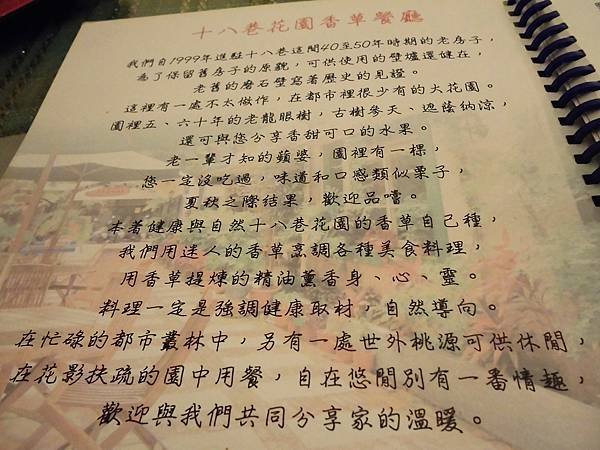 十八巷花園香草餐廳
我們自1999年進駐十八巷這間40至50年時期的老房子，
為了保留舊房子的原貌，可供使用的壁爐還健在，
老舊的磨石壁寫著歷史的見證。
這裡有一處不太做作，在都市裡很少有的大花園。
園裡五、六十年的老龍眼樹，古樹參天、遮蔭納涼，
還可與您分享香甜可口的水果。
老一輩才知的蘋婆，園裡有一棵，
您一定沒吃過，味道和口感類似栗子，
夏秋之際結果，歡迎品嚐。
本著健康與自然十八巷花園的香草自己種，
我們用迷人的香草烹調各種美食料理，
用香草提煉的精油薰香身、心、靈。
料理一定是強調健康取材，自然導向。
在忙碌的都市叢林中，另有一處世外桃源可供休閒，
在花影扶疏的園中用餐，自在悠閒別有一番情趣，
歡迎與我們共同分享家的溫暖。